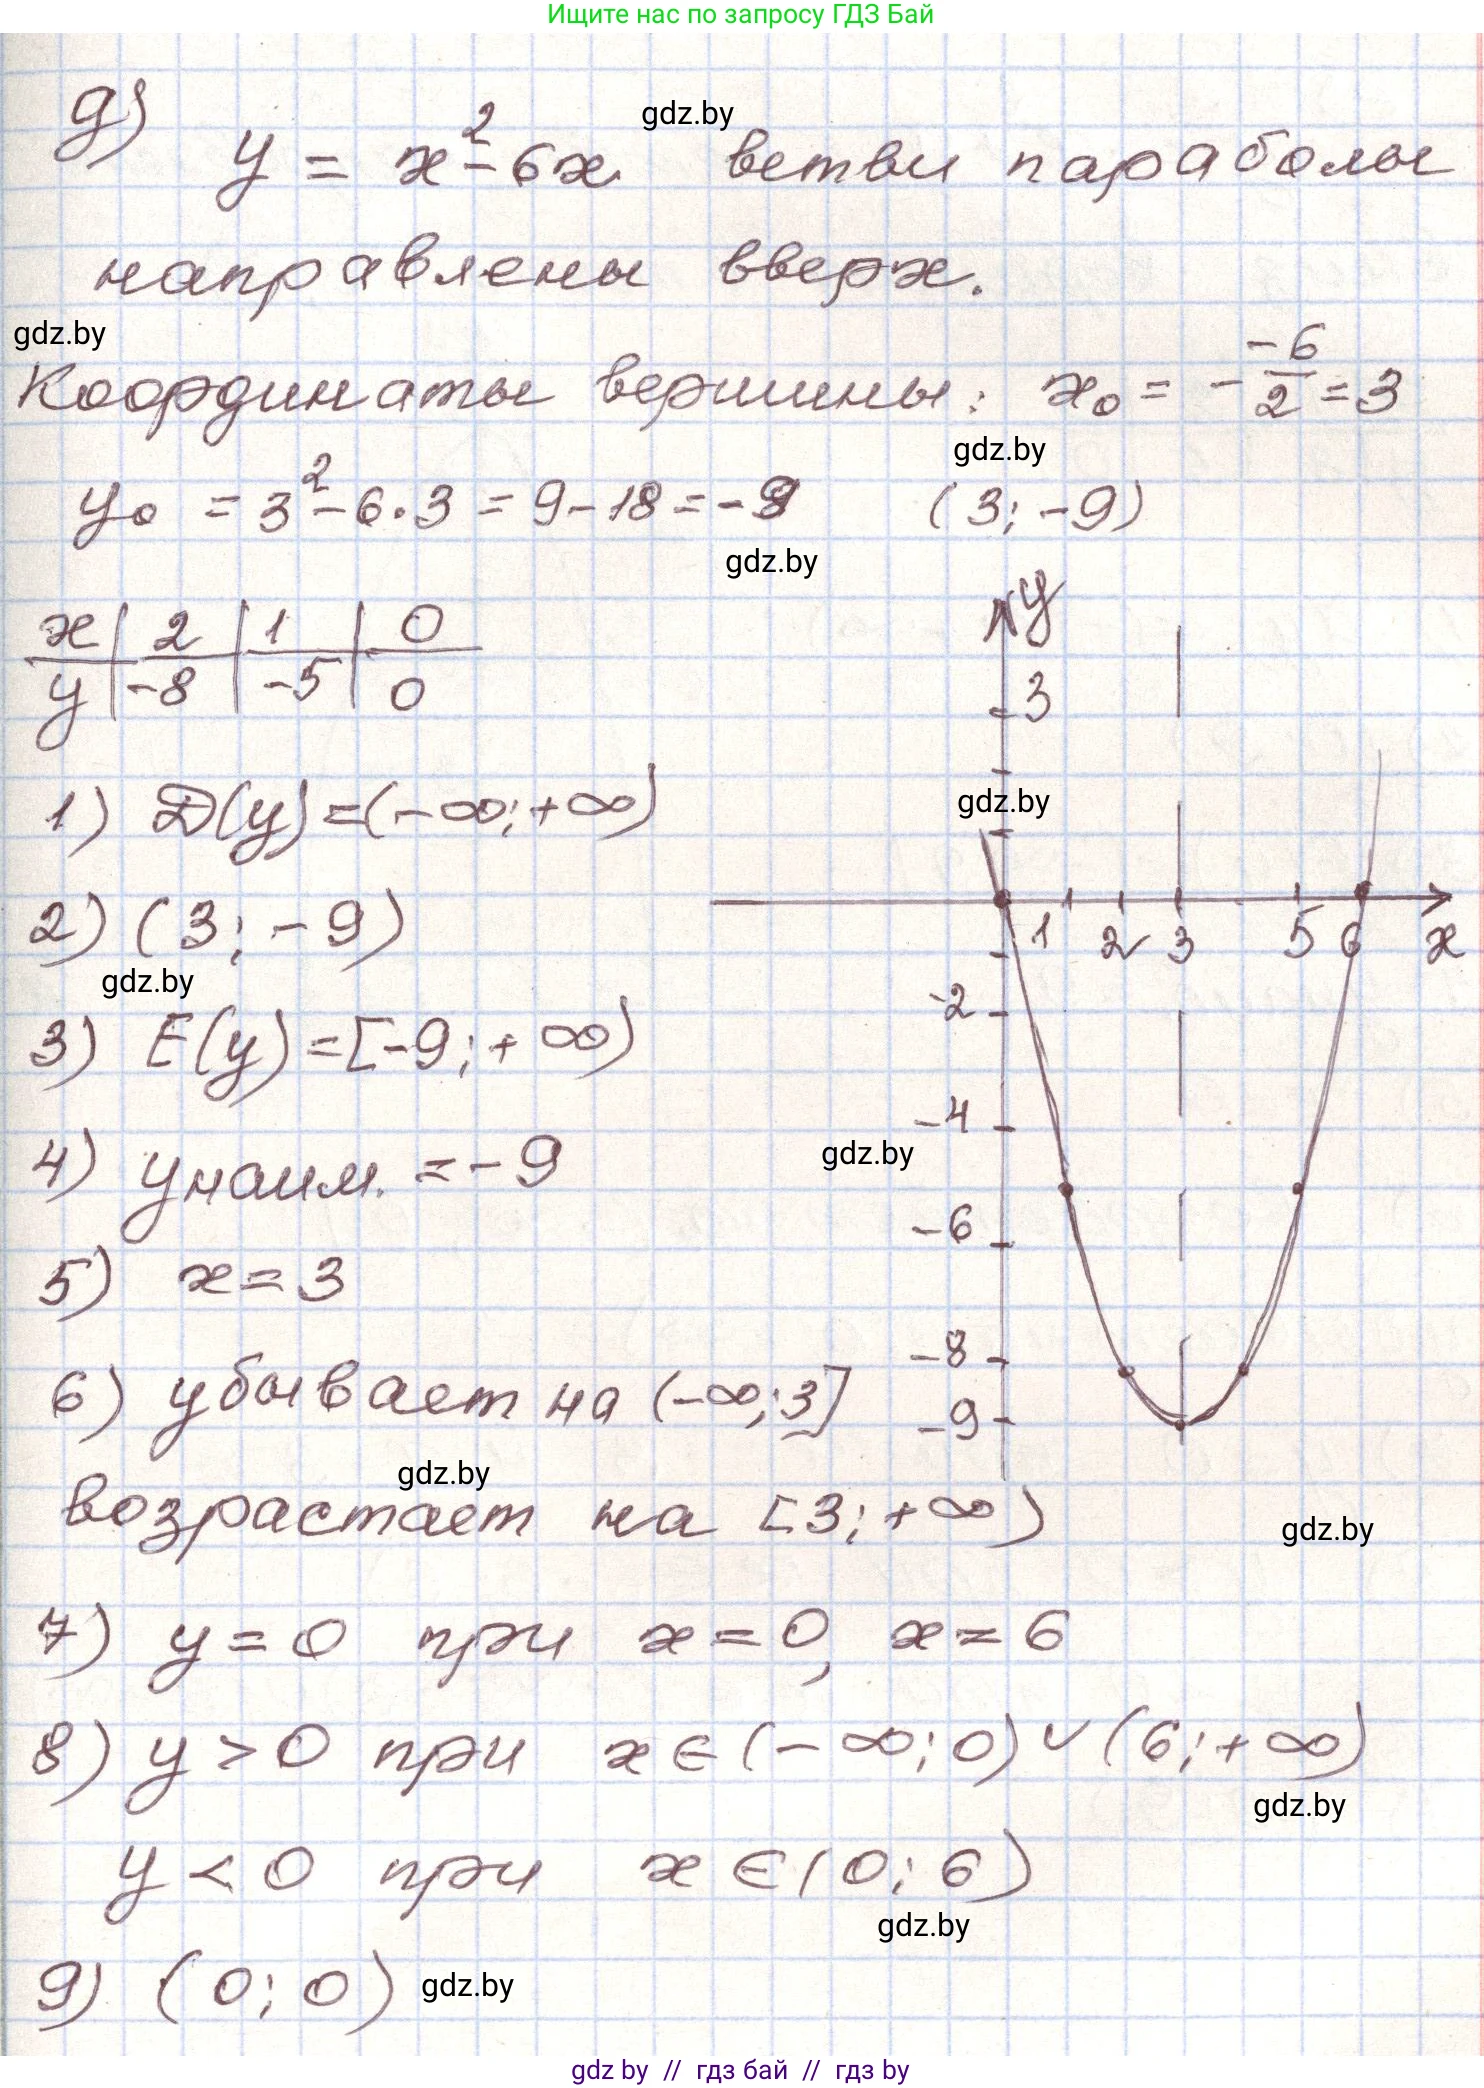 Ищите нас по запросу ГДЗ Бай
gdz.by
д) y = x² - 6x. ветви параболы
направлены вверх.
gdz.by
Координаты вершины: x₀ = - -6/2 = 3
gdz.by
y₀ = 3² - 6·3 = 9 - 18 = -9 (3; -9)
gdz.by
x | 2 | 1 | 0
y | -8 | -5 | 0
1) D(y) = (-∞; +∞)
2) (3; -9)
gdz.by
3) E(y) = [-9; +∞)
4) y наим. = -9
5) x = 3
6) убывает на (-∞; 3]
gdz.by
возрастает на [3; +∞)
y
3
gdz.by
1 2 3 5 6 x
-2
-4
gdz.by
-6
-8
-9
gdz.by
7) y = 0 при x = 0, x = 6
8) y > 0 при x ∈ (-∞; 0) ∪ (6; +∞)
gdz.by
y < 0 при x ∈ (0; 6)
gdz.by
9) (0; 0)
gdz.by
gdz by // гдз бай // гдз by